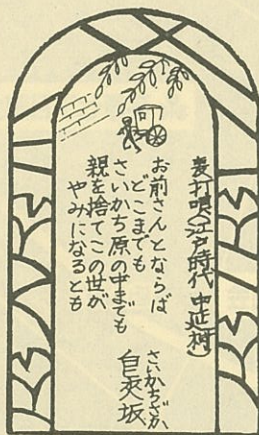 麦打唄(江戸時代 中延村)
お前さんとならば
どこまでも
さいかち原の中までも
親を捨てこの世が
やみになるとも
さいかちざか
皀莢坂